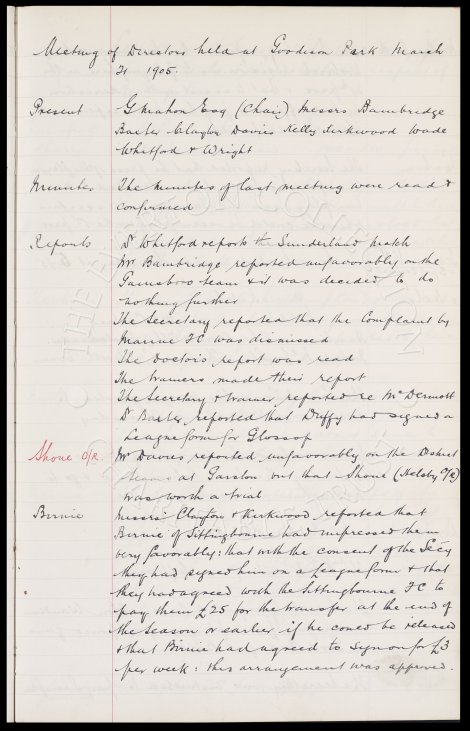 Meeting of Directors held at Goodison Park March
21 1905.
Present G Mahon Esq (Chair) Messrs Bainbridge
Baxter Clayton Davies Kelly Kirkwood Wade
Whitford & Wright
Minutes The minutes of last meeting were read &
confirmed
Reports Dr Whitford reports the Sunderland match
Mr Bainbridge reported unfavorably on the
Gainsboro team & it was decided to do
nothing further
The Secretary reported that the Complaint by
Marine FC was dismissed
The Doctors report was read
The trainers made their report
The Secretary & trainer reported re McDermott
Dr Baxter reported that Duffy had signed a
League form for Glossop
Shone O/R Mr Davies reported unfavorably on the District
teams at Garston but that Shone (Helsby O/R)
was worth a trial
Birnie Messrs Clayton & Kirkwood reported that
Birnie of Sittingbourne had impressed them
very favorably: that with the consent of the Secy
they had signed him on a League form & that
they had agreed with the Sittingbourne FC to
pay them £25 for the transfer at the end of
the season or earlier if he could be released
& that Birnie had agreed to sign on for £3
per week: this arrangement was approved.